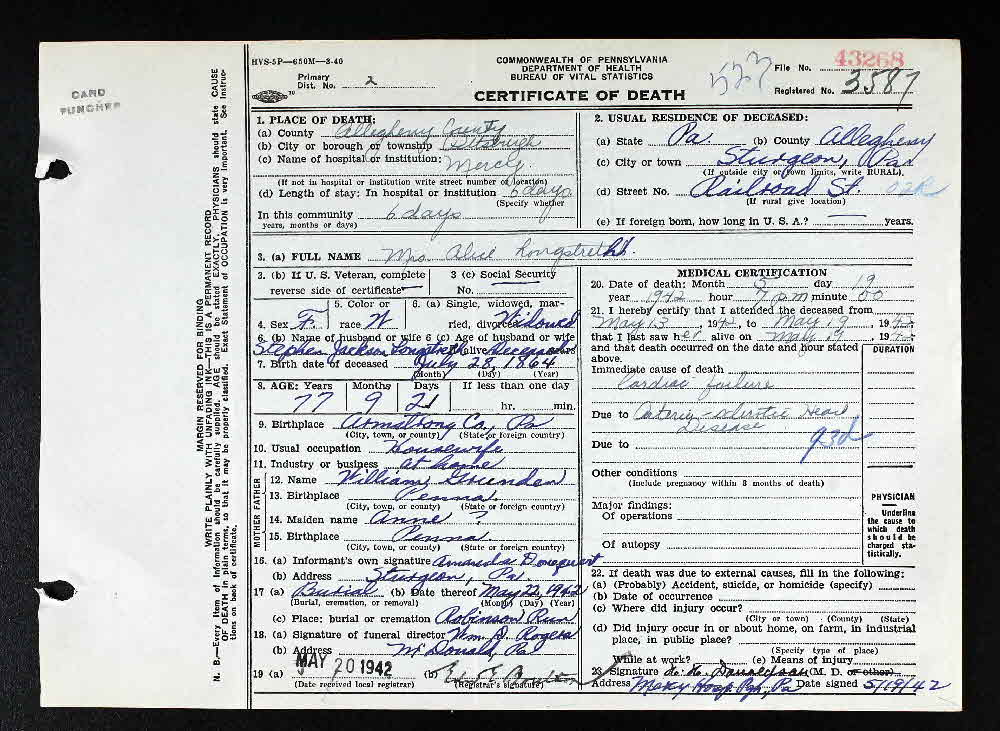 HVS-5P—650M—3-40
COMMONWEALTH OF PENNSYLVANIA
DEPARTMENT OF HEALTH
BUREAU OF VITAL STATISTICS
CERTIFICATE OF DEATH
Primary
Dist. No. 2
527
43268
File No.
Registered No. 3587
CARD
PUNCHED
N. B.—Every item of information should be carefully supplied. AGE should be stated EXACTLY. PHYSICIANS should state CAUSE
OF DEATH in plain terms, so that it may be properly classified. Exact Statement of OCCUPATION is very important. See Instruc-
tions on back of certificate.
WRITE PLAINLY WITH UNFADING INK—THIS IS A PERMANENT RECORD
MARGIN RESERVED FOR BINDING
1. PLACE OF DEATH:
(a) County Allegheny County
(b) City or borough or township Pittsburgh
(c) Name of hospital or institution:
Mercy
(If not in hospital or institution write street number or location)
(d) Length of stay: In hospital or institution 6 days
(Specify whether
In this community 6 days
years, months or days)
2. USUAL RESIDENCE OF DECEASED:
(a) State Pa. (b) County Allegheny
(c) City or town Sturgeon, Pa.
(If outside city or town limits, write RURAL)
(d) Street No. Railroad St.
(If rural give location)
(e) If foreign born, how long in U. S. A.? years.
3. (a) FULL NAME Mrs. Alice Longstreth
3. (b) If U. S. Veteran, complete
reverse side of certificate
3 (c) Social Security
No.
4. Sex F.
5. Color or
race W
6. (a) Single, widowed, mar-
ried, divorced Widowed
6. (b) Name of husband or wife 6 (c) Age of husband or wife
Stephen Jackson Longstreth alive Deceased years
7. Birth date of deceased July 28, 1864
(Month) (Day) (Year)
8. AGE: Years Months Days If less than one day
77 9 21 hr. min.
9. Birthplace Armstrong Co., Pa
(City, town, or county) (State or foreign country)
10. Usual occupation Housewife
11. Industry or business at home
FATHER
12. Name William Grunden
13. Birthplace Penna.
(City, town, or county) (State or foreign country)
MOTHER
14. Maiden name Anne ?
15. Birthplace Penna.
(City, town, or county) (State or foreign country)
16. (a) Informant's own signature Amanda
(b) Address Sturgeon, Pa.
17 (a) Burial (b) Date thereof May 22, 1942
(Burial, cremation, or removal) (Month) (Day) (Year)
(c) Place: burial or cremation Robinson Run
18. (a) Signature of funeral director Wm. Rogers
(b) Address McDonald, Pa
19 (a) MAY 20 1942 (b)
(Date received local registrar) (Registrar's signature)
MEDICAL CERTIFICATION
20. Date of death: Month 5 day 19
year 1942 hour 7 pm minute 00
21. I hereby certify that I attended the deceased from
May 13 1942, to May 19, 1942
that I last saw her alive on May 19, 1942
and that death occurred on the date and hour stated
above.
DURATION
Immediate cause of death
Cardiac failure
Due to Arterio-sclerotic Heart
Disease
93d
Due to
Other conditions
(Include pregnancy within 3 months of death)
Major findings:
Of operations
Of autopsy
PHYSICIAN
Underline
the cause to
which death
should be
charged sta-
tistically.
22. If death was due to external causes, fill in the following:
(a) (Probably) Accident, suicide, or homicide (specify)
(b) Date of occurrence
(c) Where did injury occur?
(City or town) (County) (State)
(d) Did injury occur in or about home, on farm, in industrial
place, in public place?
(Specify type of place)
While at work? (e) Means of injury
23 Signature Donaldson (M. D. or other)
Address Mercy Hosp. Pgh, Pa Date signed 5/19/42